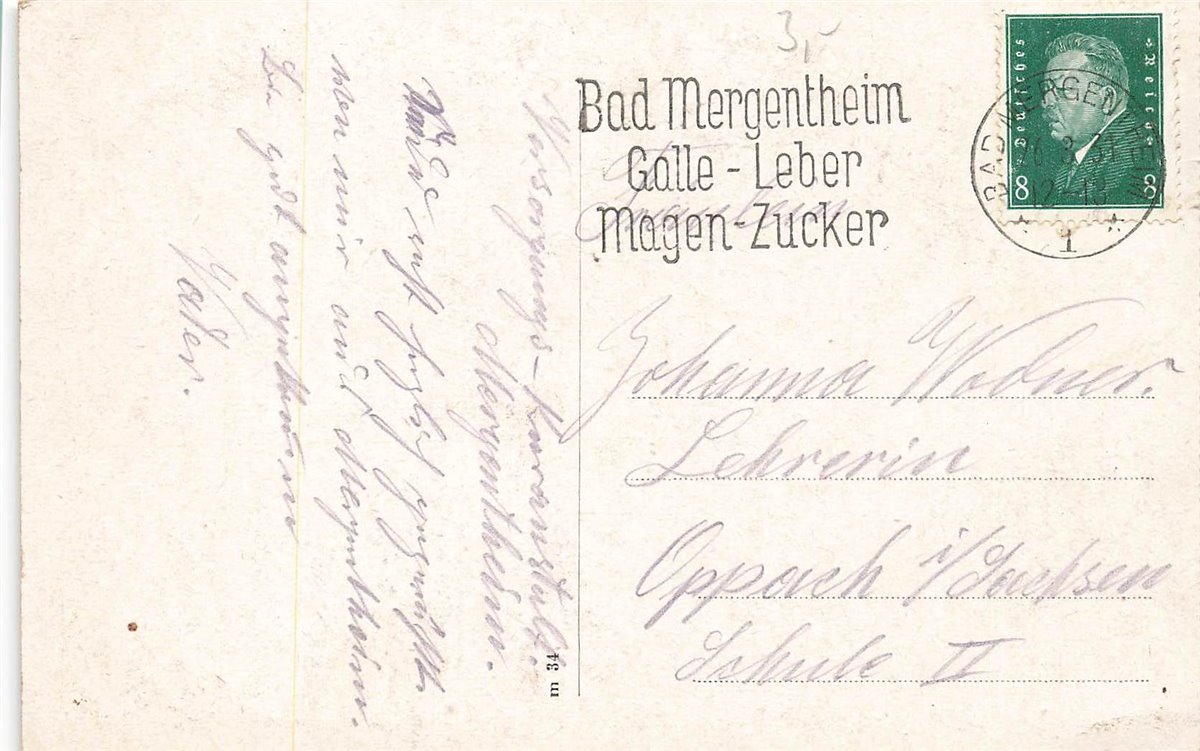 3,-
Bad Mergentheim
Galle - Leber
Magen-Zucker
Deutsches Reich
8 8
BAD MERGENTHEIM
12-13
* 1 *
Fräulein
Johanna Wodner.
Lehrerin
Oppach i/Sachsen
Schule II
Versorgungs-Kuranstalt.
Mergentheim.
nun auch Mergentheim.
Bin gut angekommen
Vater.
m 34